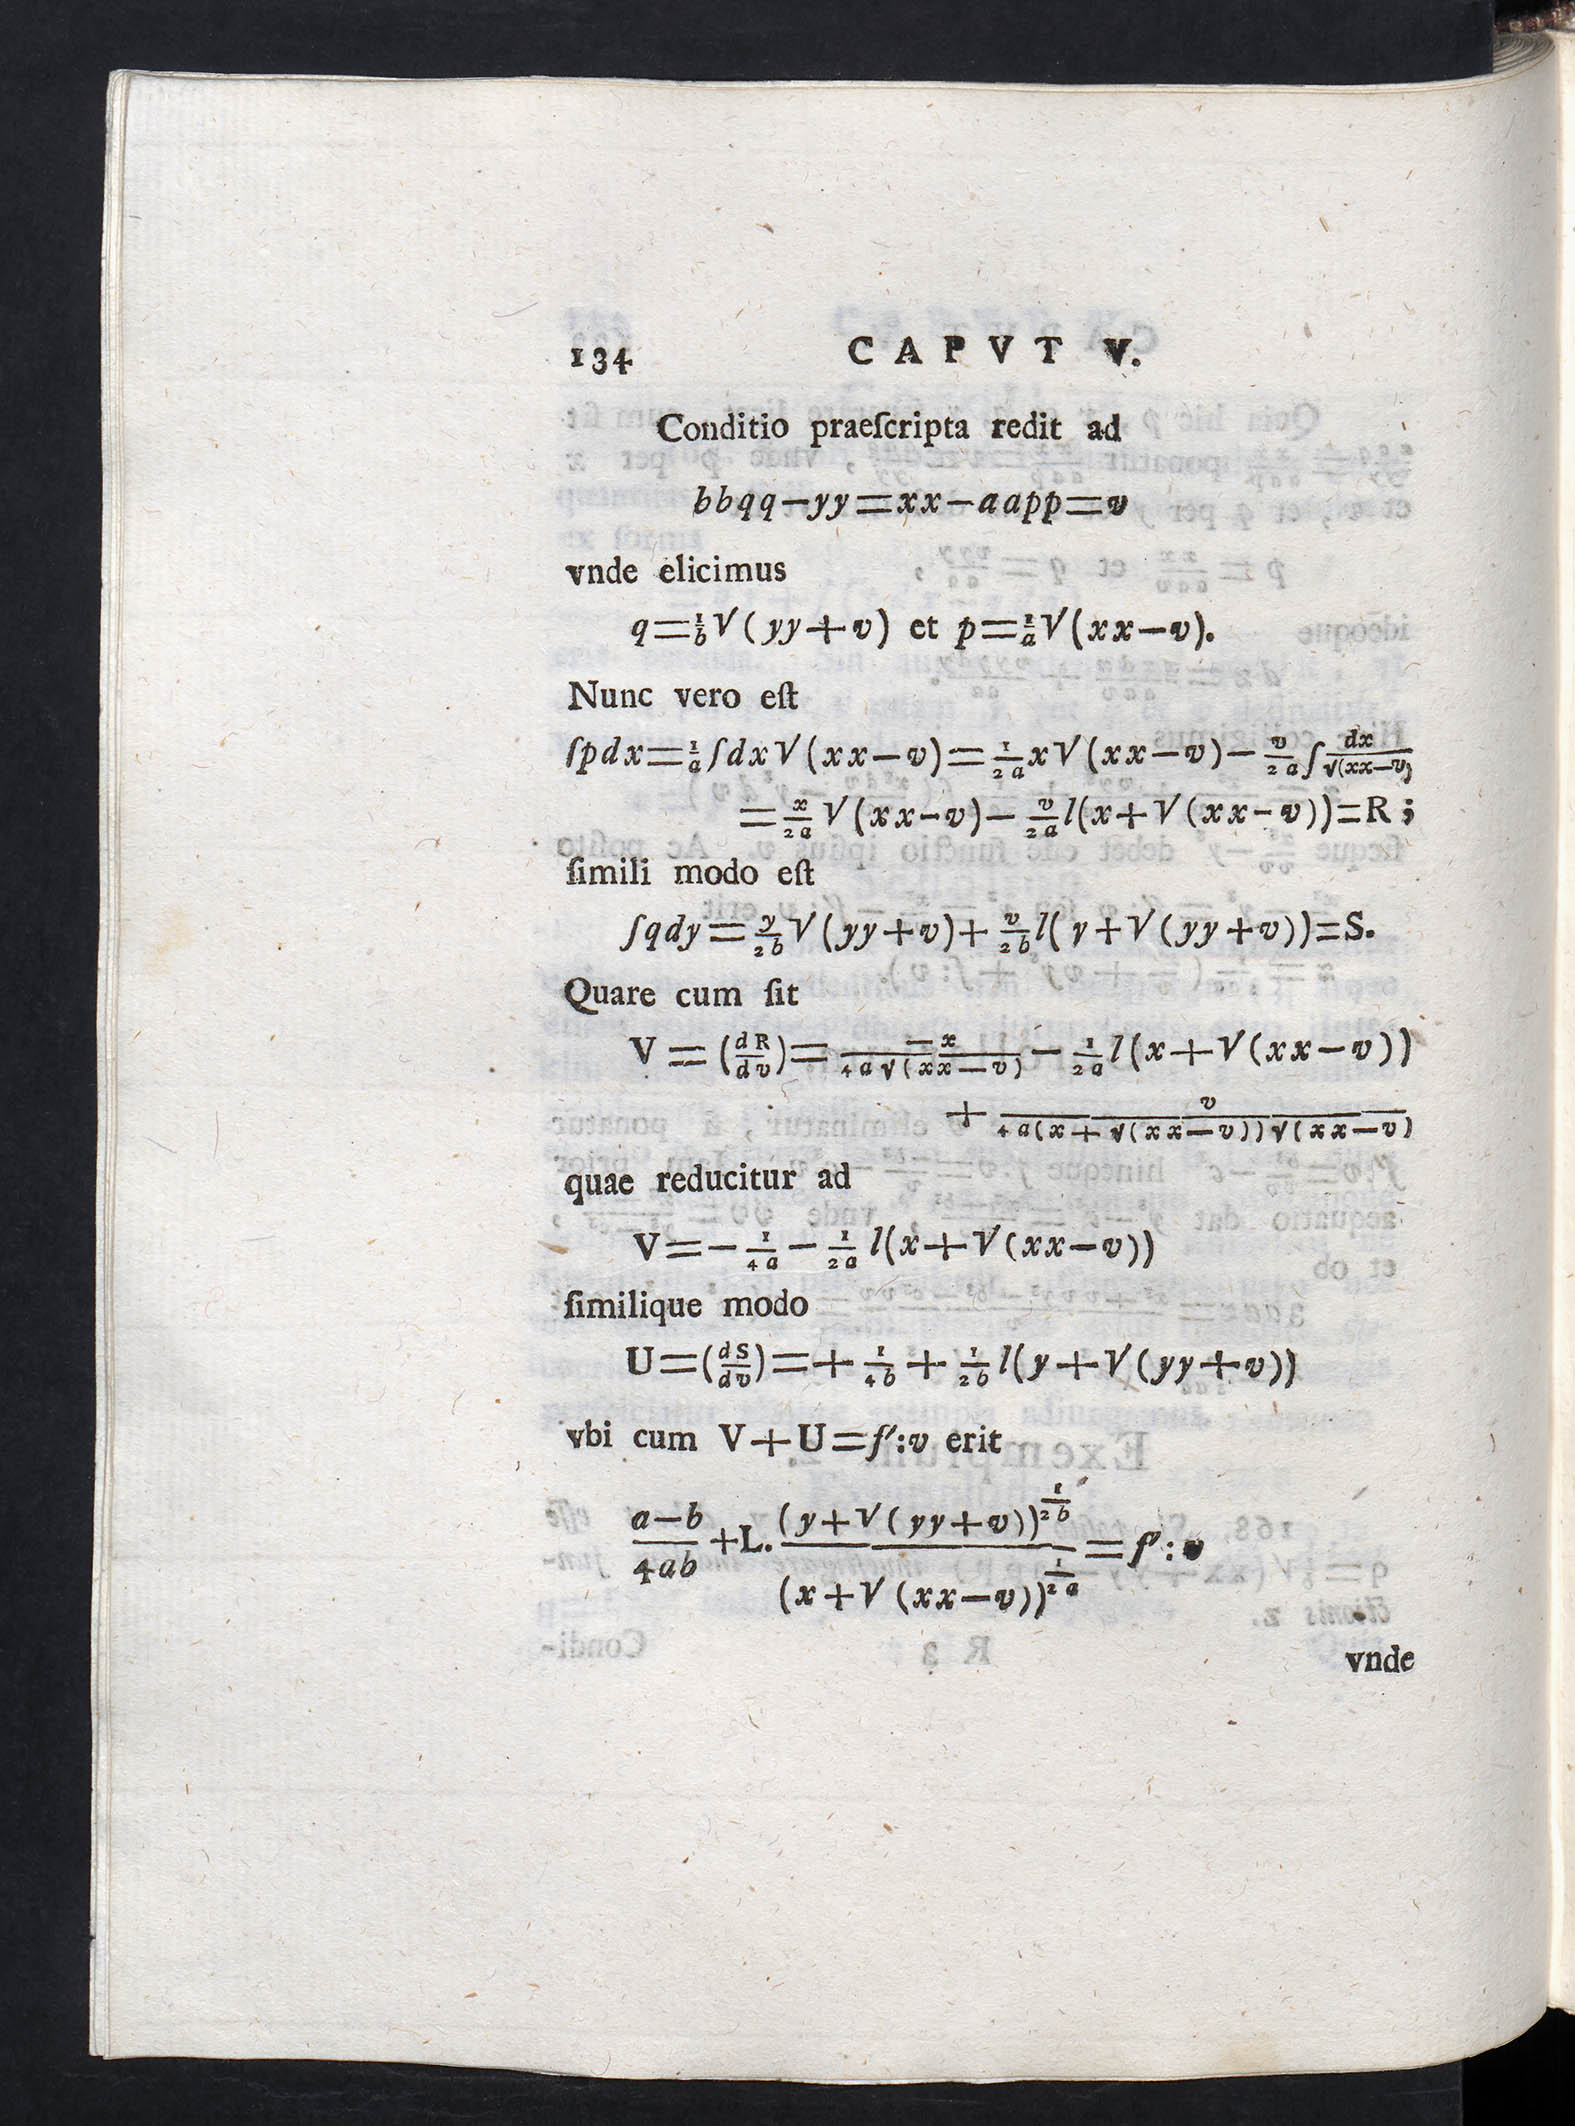 134 CAPVT V.
Conditio praeſcripta redit ad
bbqq−yy=xx−aapp=v
vnde elicimus
q=1/b √(yy+v) et p=1/a √(xx−v).
Nunc vero eſt
∫pdx=1/a ∫dx√(xx−v)=1/2a x√(xx−v)−v/2a ∫dx/√(xx−v)
=x/2a √(xx−v)−v/2a l(x+√(xx−v))=R;
ſimili modo eſt
∫qdy=y/2b √(yy+v)+v/2b l(y+√(yy+v))=S.
Quare cum ſit
V=(dR/dv)=−x/4a√(xx−v)−1/2a l(x+√(xx−v))
+v/4a(x+√(xx−v))√(xx−v)
quae reducitur ad
V=−1/4a−1/2a l(x+√(xx−v))
ſimilique modo
U=(dS/dv)=+1/4b+1/2b l(y+√(yy+v))
vbi cum V+U=f′:v erit
a−b/4ab+L.(y+√(yy+v))^1/2b/(x+√(xx−v))^1/2a=f′:v
vnde